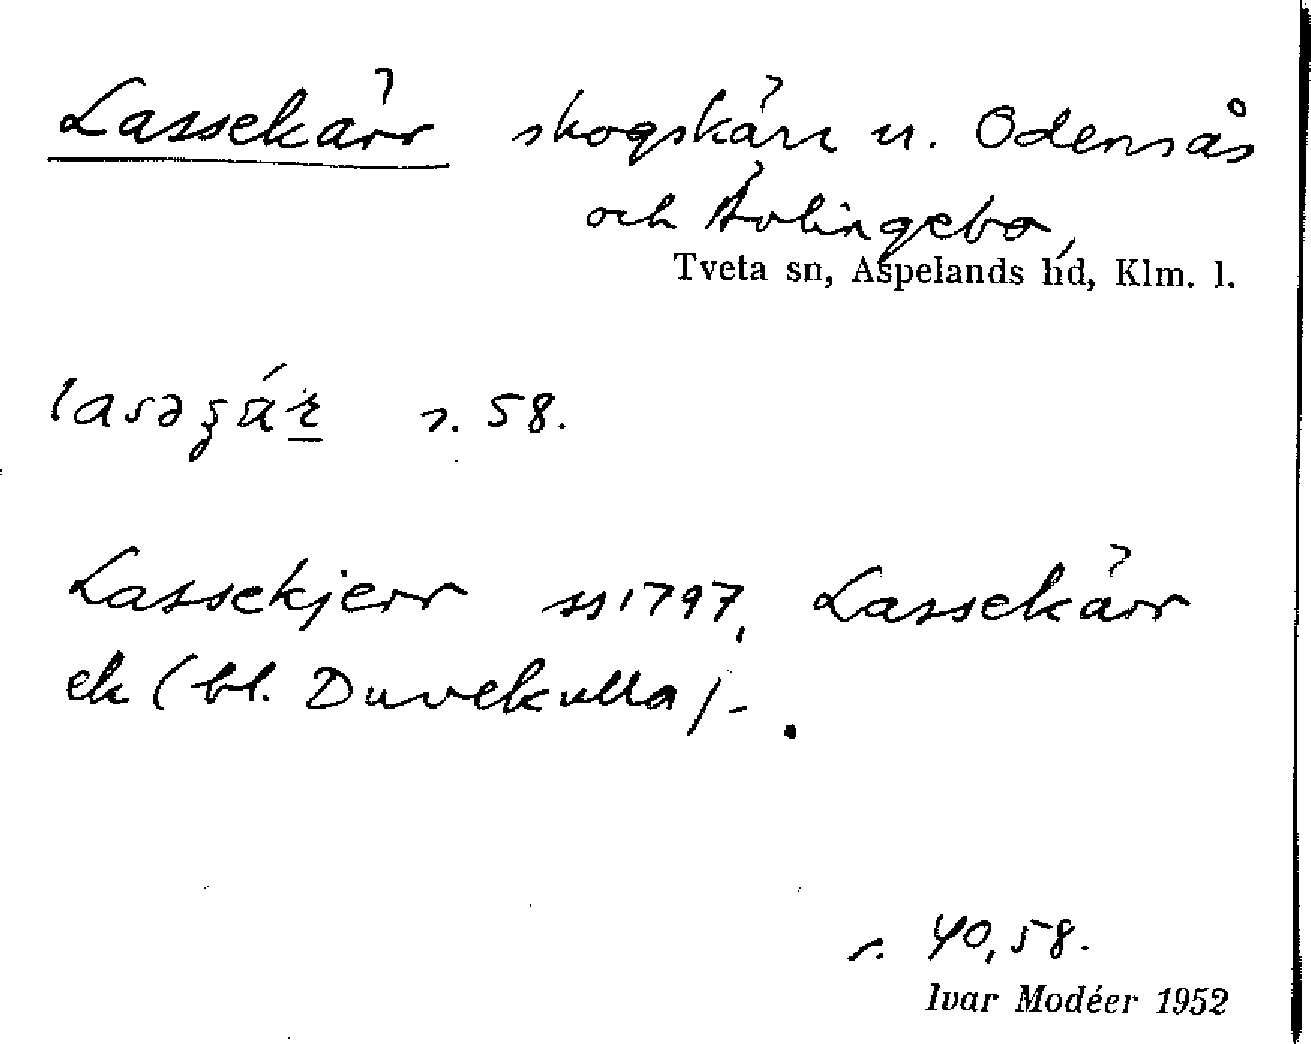 Lassekärr skogskärr u. Odensås
och Ävlingebo,
Tveta sn, Aspelands hd, Klm. l.
s. 58.
Lassekjerr ss 1797, Lassekärr
ek (bl. Duvekulla) -.
s. 40, 58.
Ivar Modéer 1952